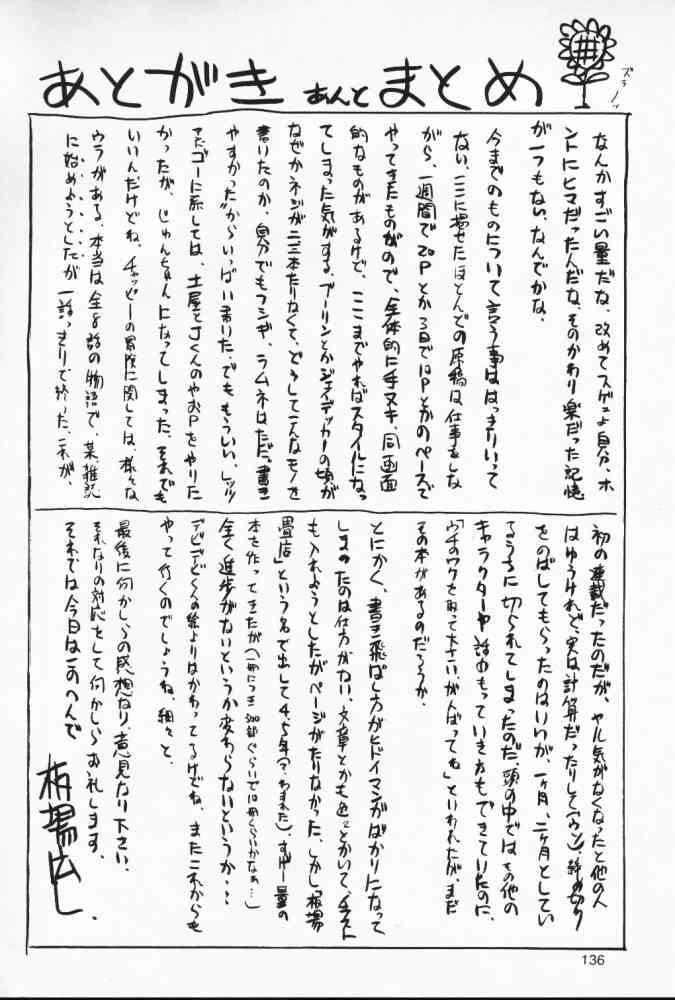 あとがき あんど まとめ
ズラーッ
なんかすごい量だな、改めてスゲェよ自分、ホ
ントにヒマだったんだな、そのかわり楽だった記憶
が一つもない、なんでかな、
今までのものについて言う事ははっきりいって
ない、ここに掲せたほとんどの原稿は仕事をしな
がら、一週間で20Pとか3日で12Pとかのペースで
やってきたものなので、全体的に手ヌキ、同画面
的なものがあるけど、ここまでやればスタイルになっ
てしまった気がする、ブーリンとかジェイデッカーの頃が
なぜかネジが二三本たりなくて、どうしてこんなモノを
書いたのか、自分でもフシギ、ラムネはただ"書き
やすかった"からいっぱい書いた、でももういい、レッツ
&ゴーに系しては、土屋とJくんのやおPをやりた
かったが、じゅんちゃんになってしまった、それでも
いいんだけどね、チャッピーの冒険に関しては、様々な
ウラがある、本当は全8話の物語で、某、雑誌
に始めようとしたが一話っきりで終った、これが、
初の連載だったのだが、ヤル気がなくなったと他の人
はゆうけれど、実は計算だったりして(ウソ)、〆め切り
をのばしてもらったのはいいが、一ヶ月、二ヶ月としてい
るうちに切られてしまったのだ、頭の中では、その他の
キャラクターや話のもっていき方もできていたのに、
「ウチのワケを取って下さい、がんばってね」といわれたが、まだ
その本があるのだろうか、
とにかく、書き飛ばし方がヒドイマンガばかりになって
しまったのは仕方がない、文章とかも色々とかいて、イラスト
も入れようとしたがページがたりなかった、しかし「板場
畳店」という名で出して4、5年(?、わすれた)、すげー量の
本を作ってきたが(一冊につき300部ぐらいで10冊くらいかなぁ…)
全く進歩がないというか変わらないというか・・・
デビデビくんの絵よりはかわってるけどね、またこれからも
やって行くのでしょうね、細々と、
最後に何かしらの感想なり、意見なり下さい、
それなりの対応をして何かしらお礼します、
それでは今日はこのへんで
板場広し、
136